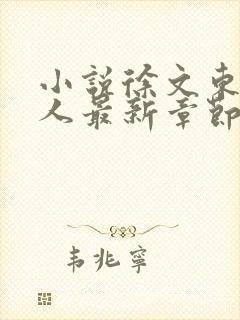 小説徐文東
人最新章節
韦兆寧